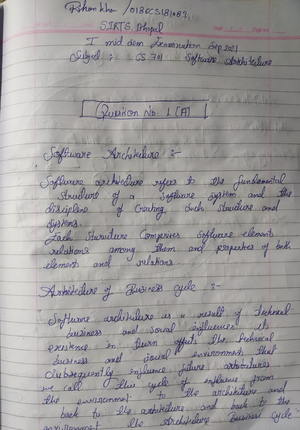 0186CS181083
SIRTS Bhopal
I mid sem Examination Sep 2021
Subject : CS 701 Software Architecture
Question No. 1 [A]
Software Architecture :-
Software architecture refers to the fundamental
Structure of a Software System and the
discipline of Creating Such Structure and
System.
Each Structure Comprises Software elements
relations among them and properties of both
element and relations
Architecture of Business cycle :-
Software architecture is a result of technical
business and social influences its
existence in turn affects the technical
business and social environments that
Subsequently influence future architectures
we call this cycle of influence from
the environment to the architecture and
back to the architecture and back to the
environment the Architecture business cycle